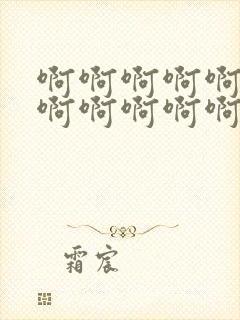 啊啊啊啊啊
啊啊啊啊啊
霜宸